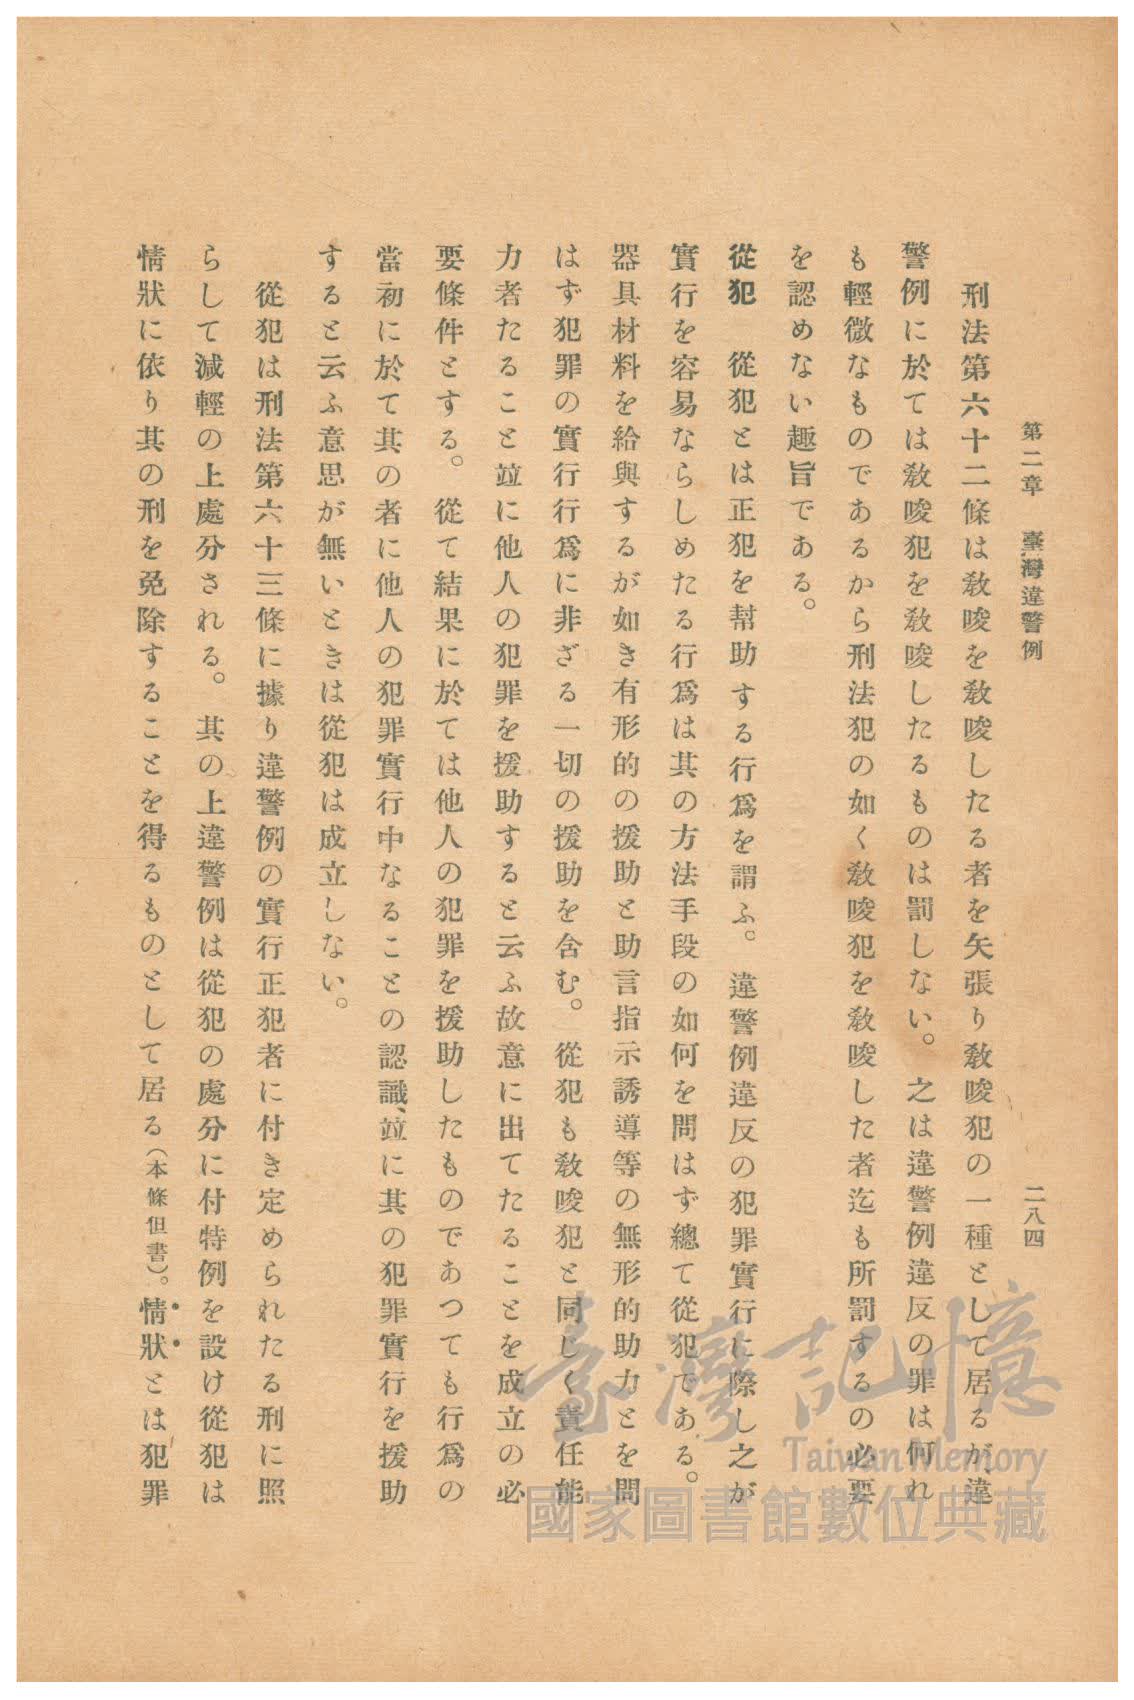 第二章　臺灣違警例　二八四
刑法第六十二條は敎唆を敎唆したる者を矢張り敎唆犯の一種として居るが、違
警例に於ては敎唆犯を敎唆したるものは罰しない。之は違警例違反の罪は何れ
も輕微なものであるから刑法犯の如く敎唆犯を敎唆した者迄も所罰するの必要
を認めない趣旨である。
從犯　從犯とは正犯を幇助する行爲を謂ふ。違警例違反の犯罪實行に際し之が
實行を容易ならしめたる行爲は其の方法手段の如何を問はず總て從犯である。
器具材料を給與するが如き有形的の援助と助言指示誘導等の無形的助力とを問
はず犯罪の實行行爲に非ざる一切の援助を含む。從犯も敎唆犯と同じく責任能
力者たること竝に他人の犯罪を援助すると云ふ故意に出てたることを成立の必
要條件とする。從て結果に於ては他人の犯罪を援助したものであつても行爲の
當初に於て其の者に他人の犯罪實行中なることの認識、竝に其の犯罪實行を援助
すると云ふ意思が無いときは從犯は成立しない。
從犯は刑法第六十三條に據り違警例の實行正犯者に付き定められたる刑に照
らして減輕の上處分される。其の上違警例は從犯の處分に付特例を設け從犯は
情狀に依り其の刑を免除することを得るものとして居る（本條但書）。情狀とは犯罪
臺灣記憶
Taiwan Memory
國家圖書館數位典藏